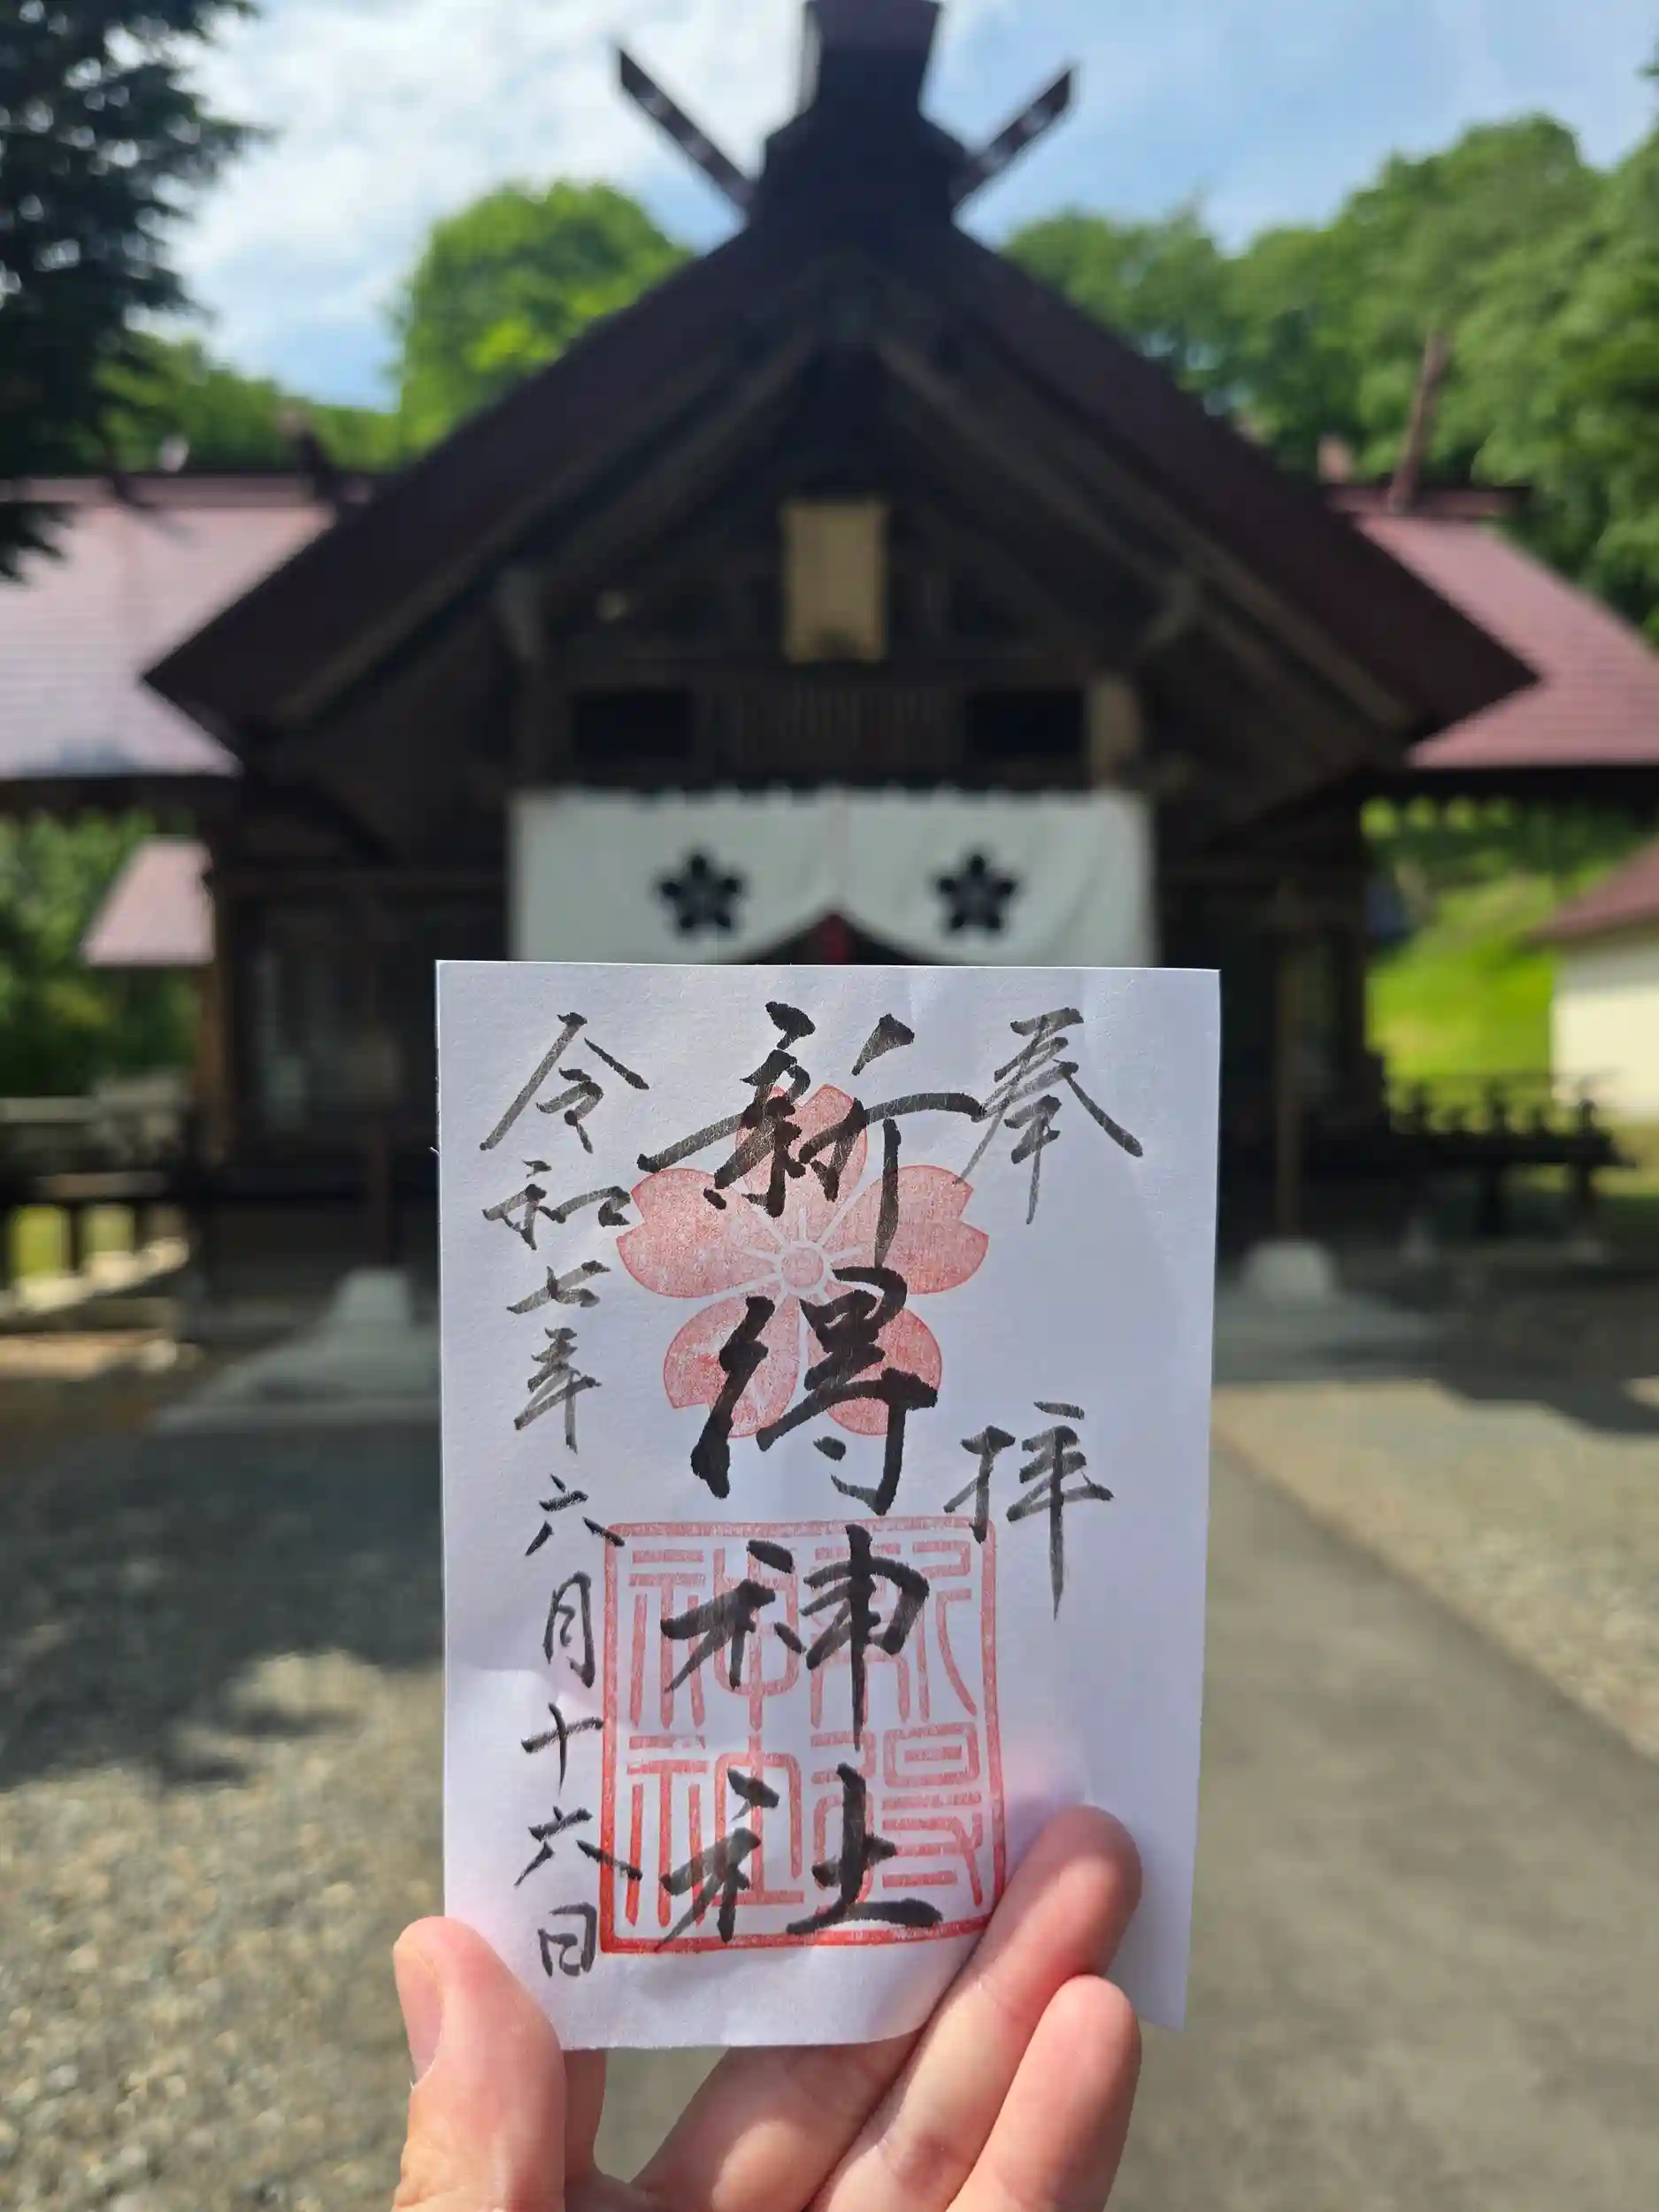 奉拝
新得神社
令和七年六月十六日
新得
神社